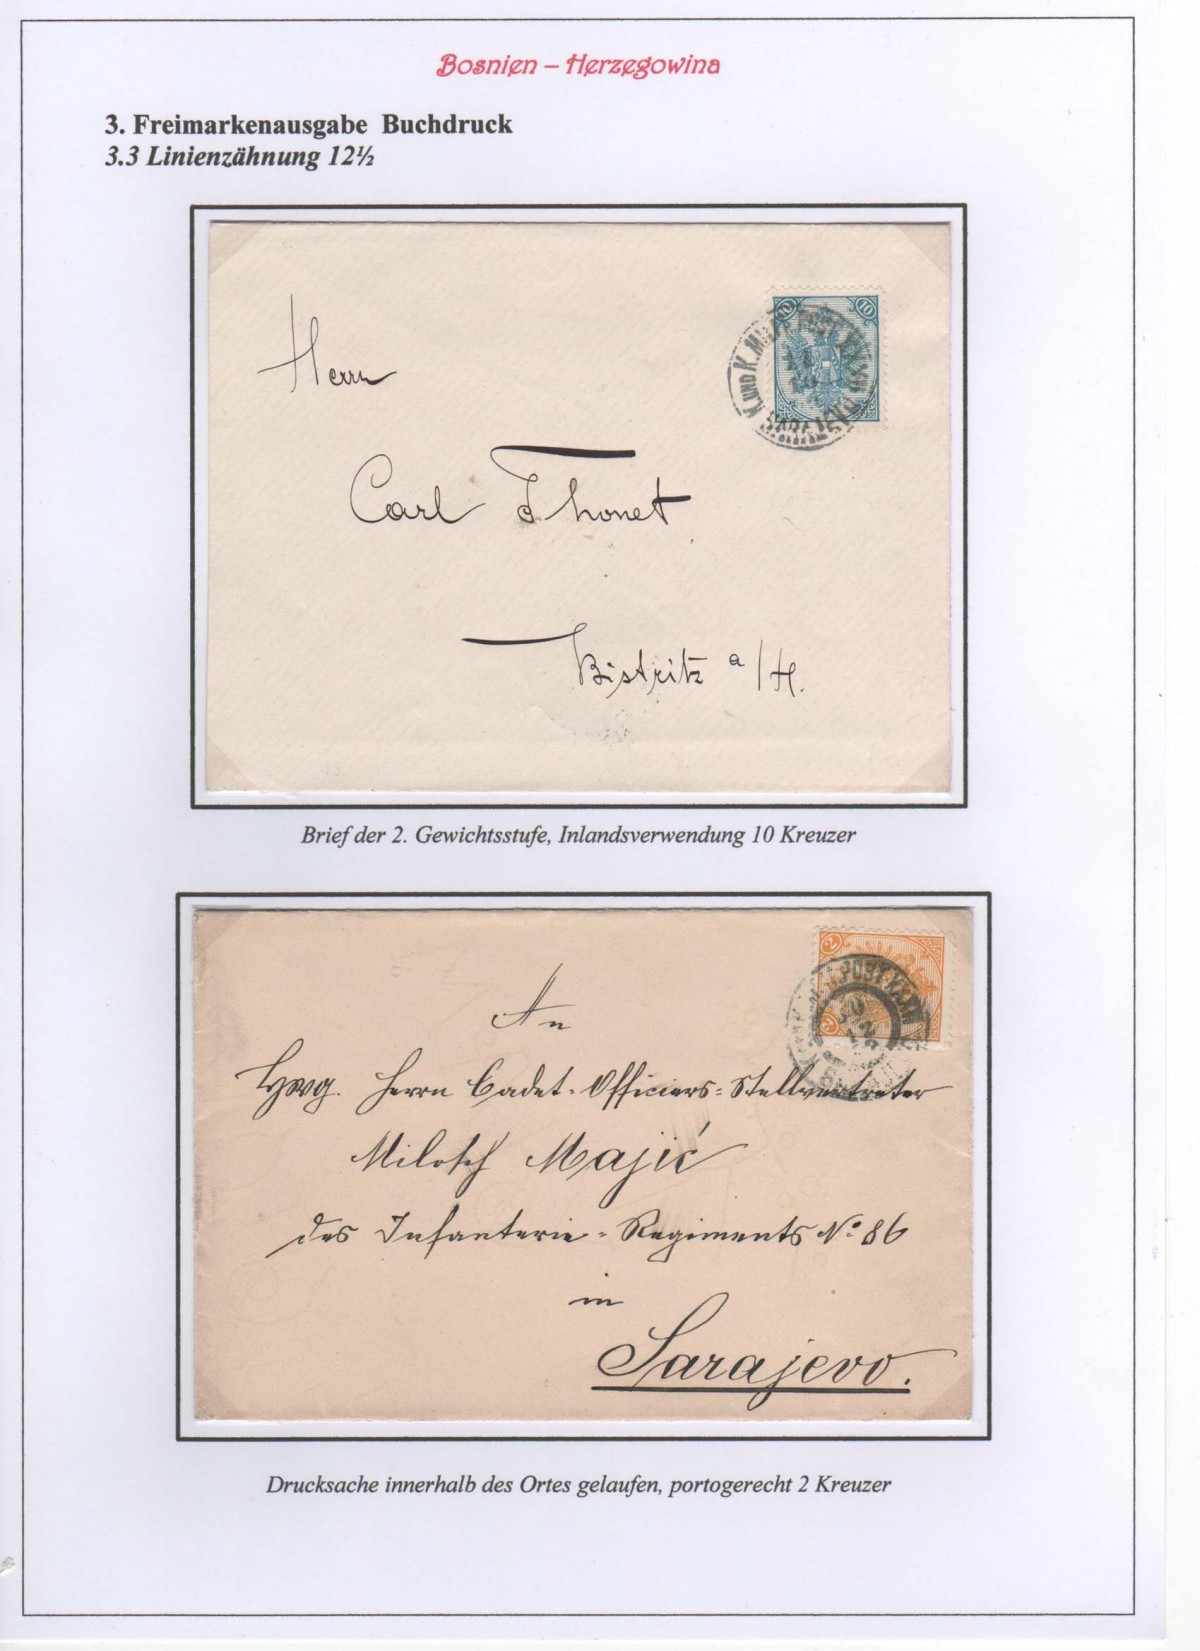 Bosnien – Herzegowina
3. Freimarkenausgabe Buchdruck
3.3 Linienzähnung 12½
10 10
K. UND K. MILIT. POST
SARAJEVO
Herrn
Carl Thonet
Bistritz a/H.
Brief der 2. Gewichtsstufe, Inlandsverwendung 10 Kreuzer
2
POST
An
Herrn Cadet-Officiers-Stellvertreter
Milosch Majić
des Infanterie-Regiments No. 86
in
Sarajevo.
Drucksache innerhalb des Ortes gelaufen, portogerecht 2 Kreuzer